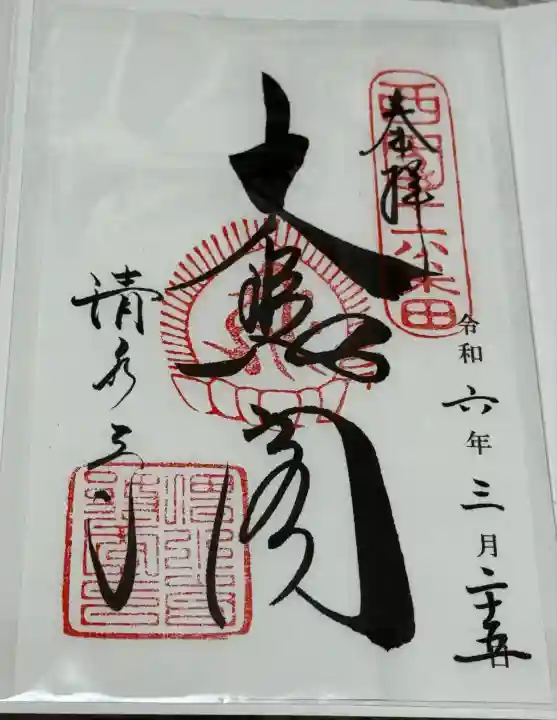 奉拝
西国十六番
令和六年三月二十五日
大悲閣
清水寺